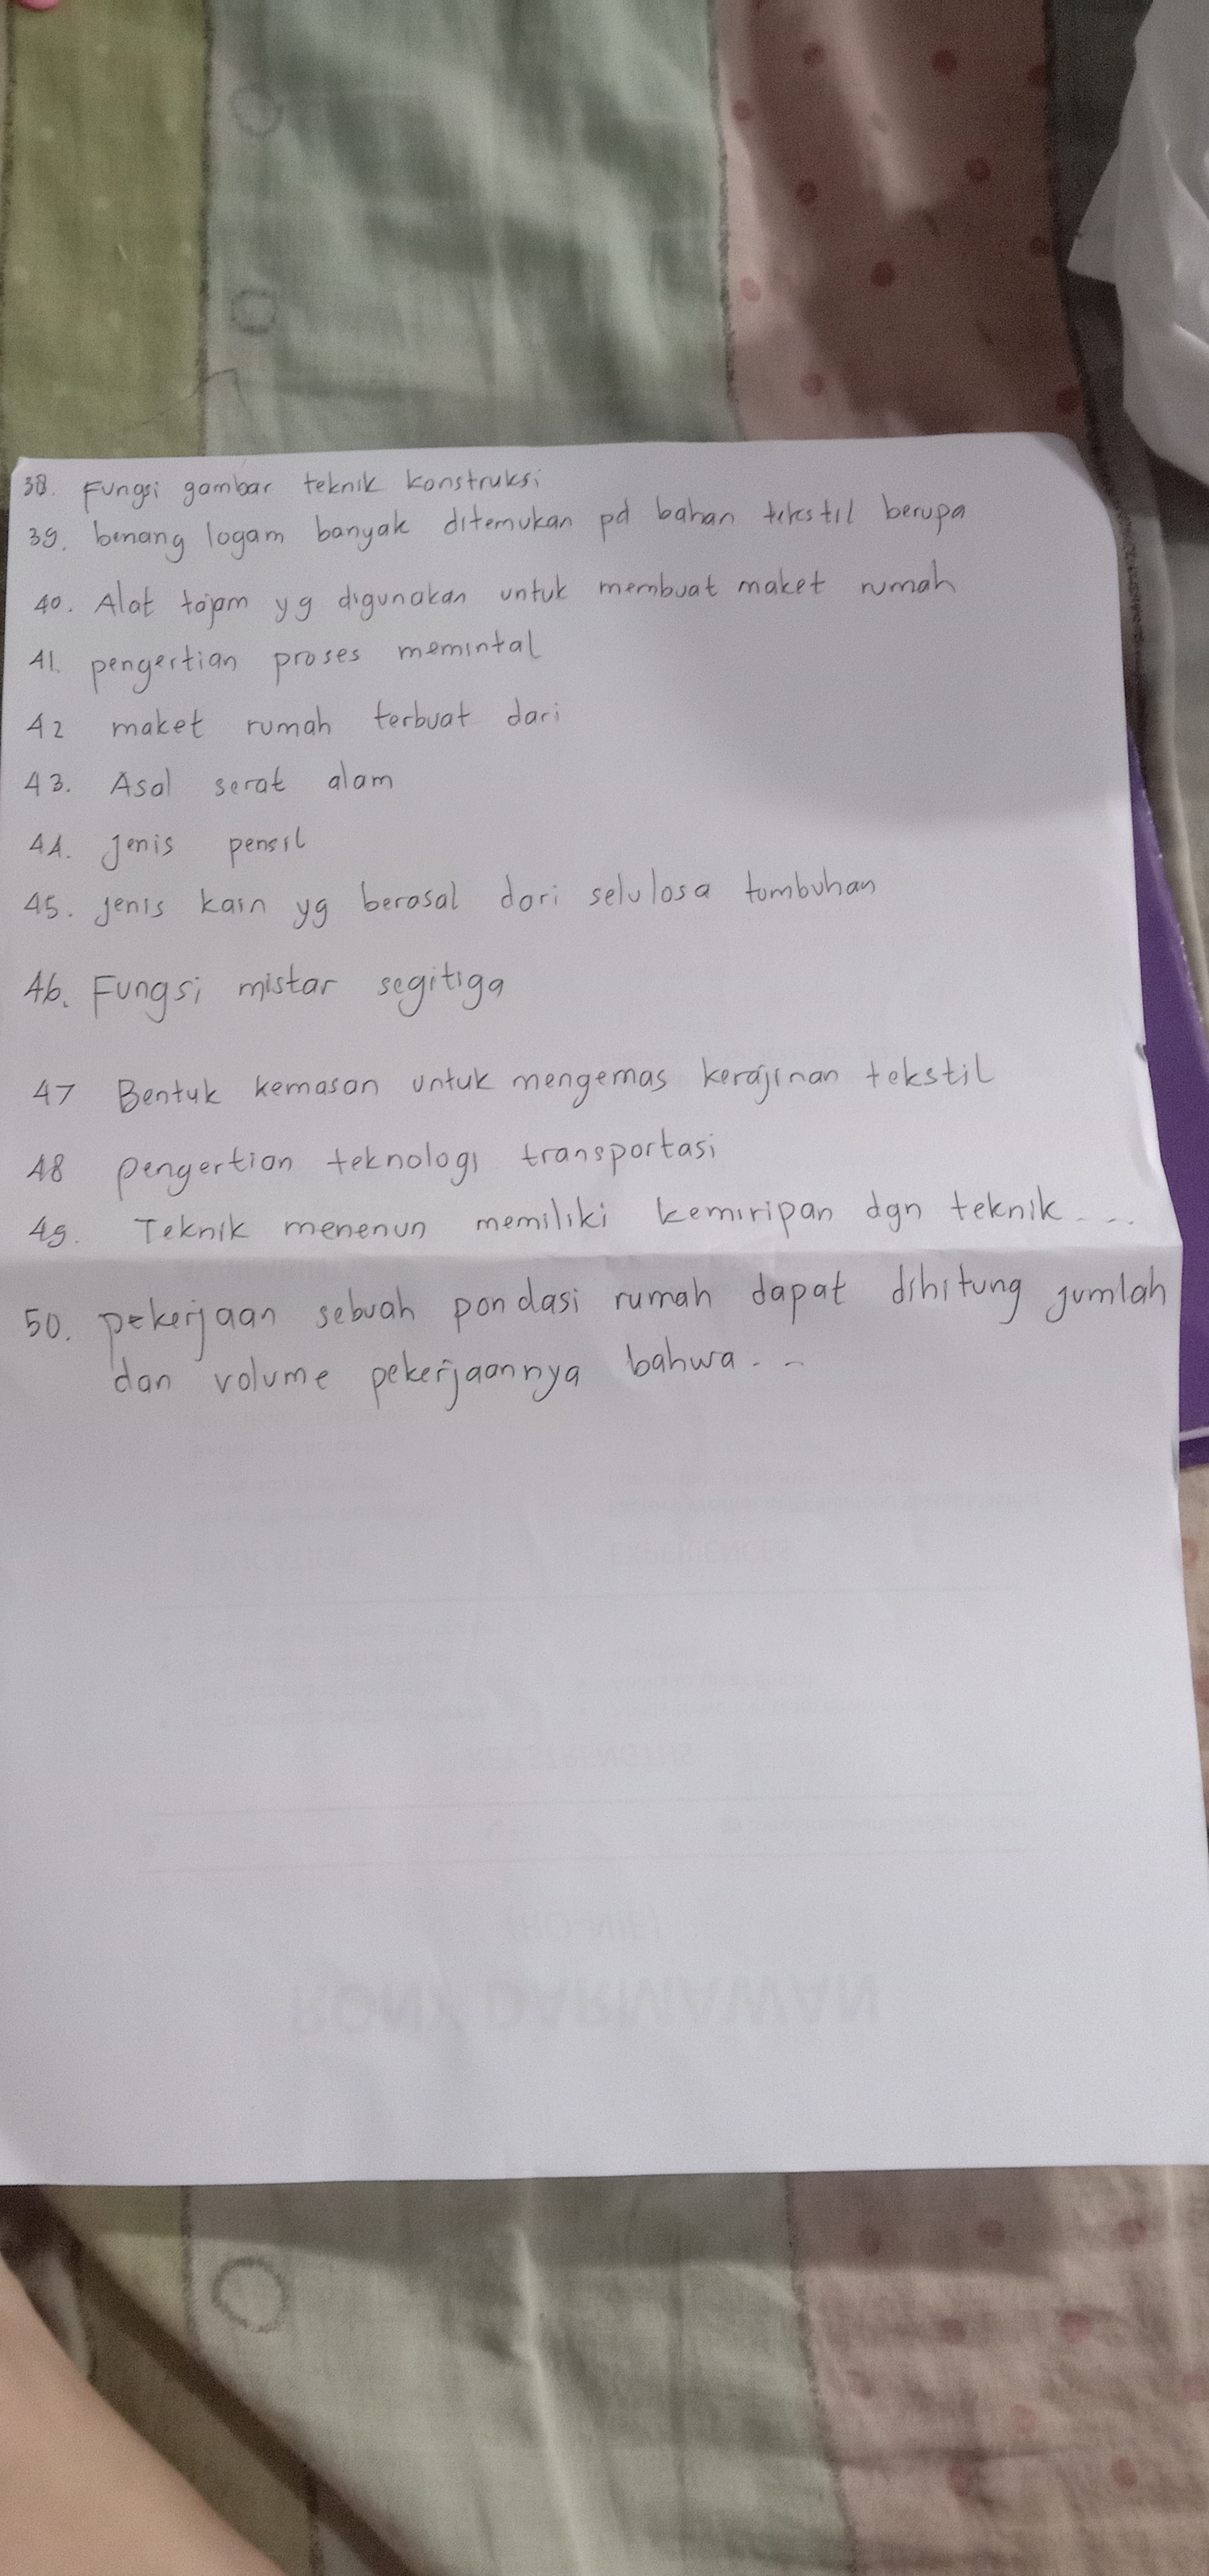 38. Fungsi gambar teknik konstruksi
39. benang logam banyak ditemukan pd bahan tekstil berupa
40. Alat tajam yg digunakan untuk membuat maket rumah
41. pengertian proses memintal
42 maket rumah terbuat dari
43. Asal serat alam
44. Jenis pensil
45. jenis kain yg berasal dari selulosa tumbuhan
46. Fungsi mistar segitiga
47 Bentuk kemasan untuk mengemas kerajinan tekstil
48 pengertian teknologi transportasi
49. Teknik menenun memiliki kemiripan dgn teknik ....
50. pekerjaan sebuah pondasi rumah dapat dihitung jumlah
dan volume pekerjaannya bahwa...
EDUCATION
EXPERIENCES
KEY STRENGTHS
(RO-NIE)
RONY DARMAWAN